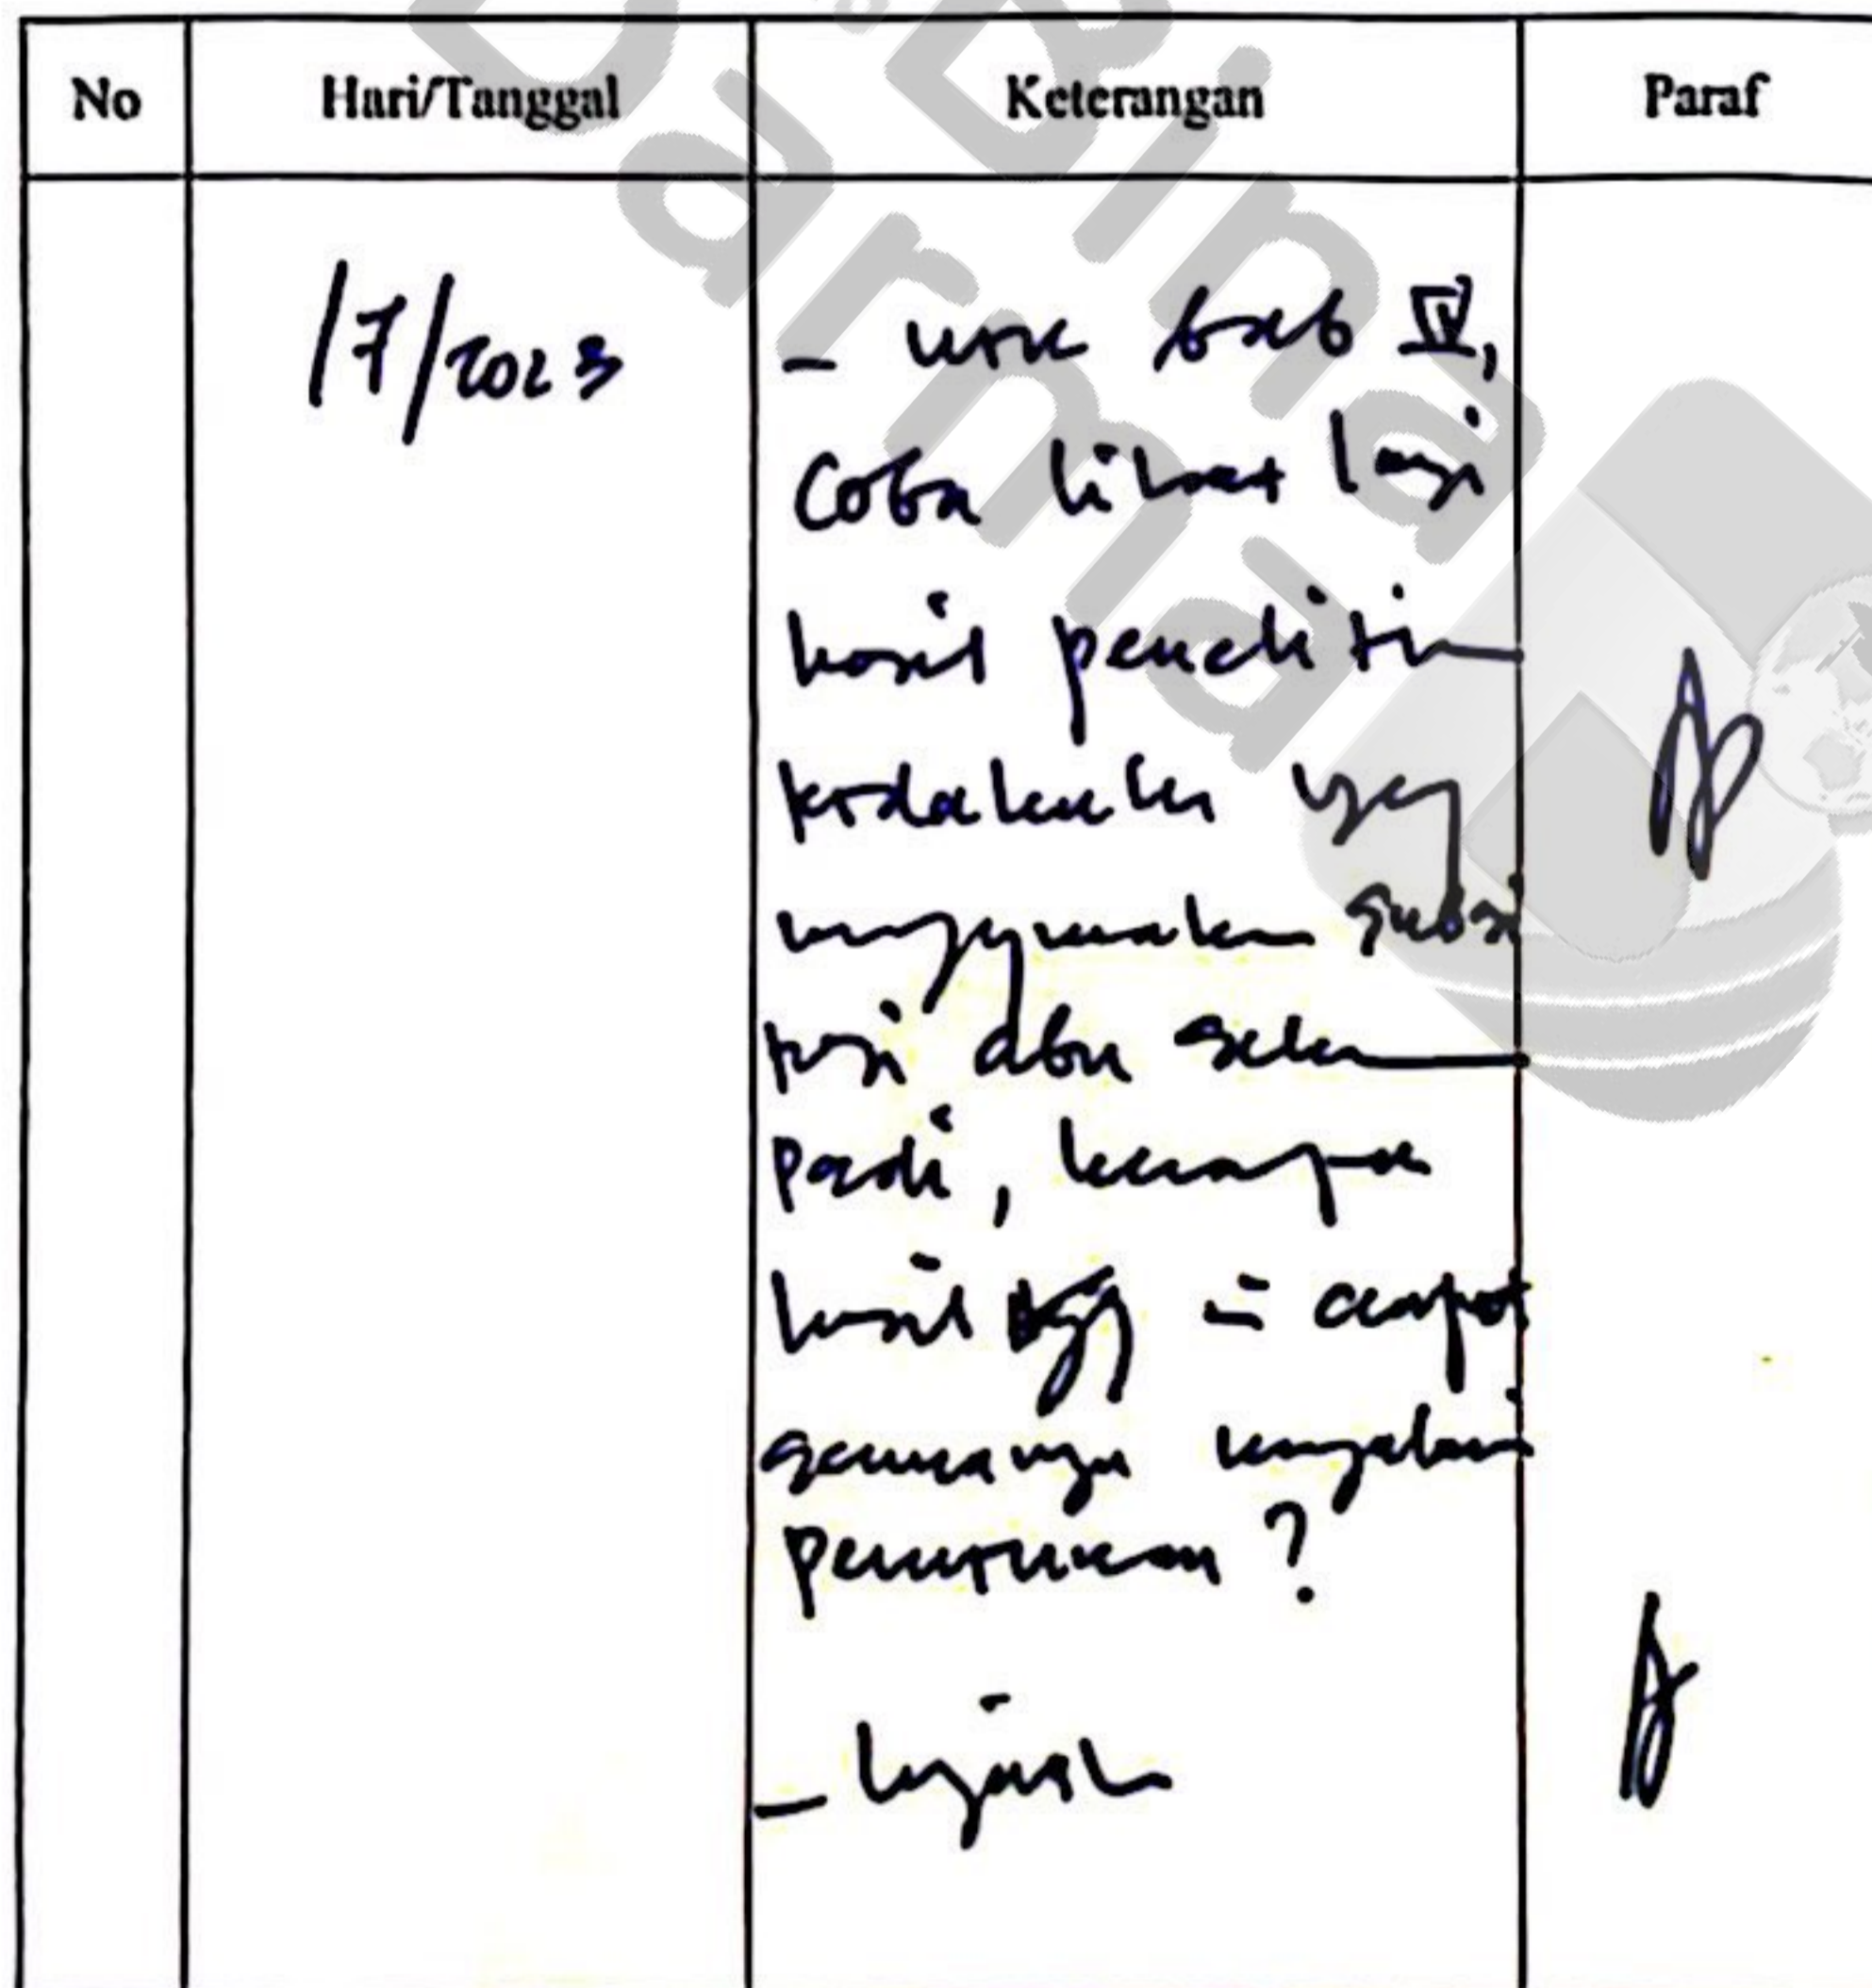 No Hari/Tanggal Keterangan Paraf
/7/2023 - utk bab IV,
Coba lihat lagi
hasil penelitian
terdahulu yg
menggunakan substi
tusi abu sekam
padi, kenapa
hasil campat
semuanya mengalami
penurunan ?
- lanjutkan
Bina
Darma